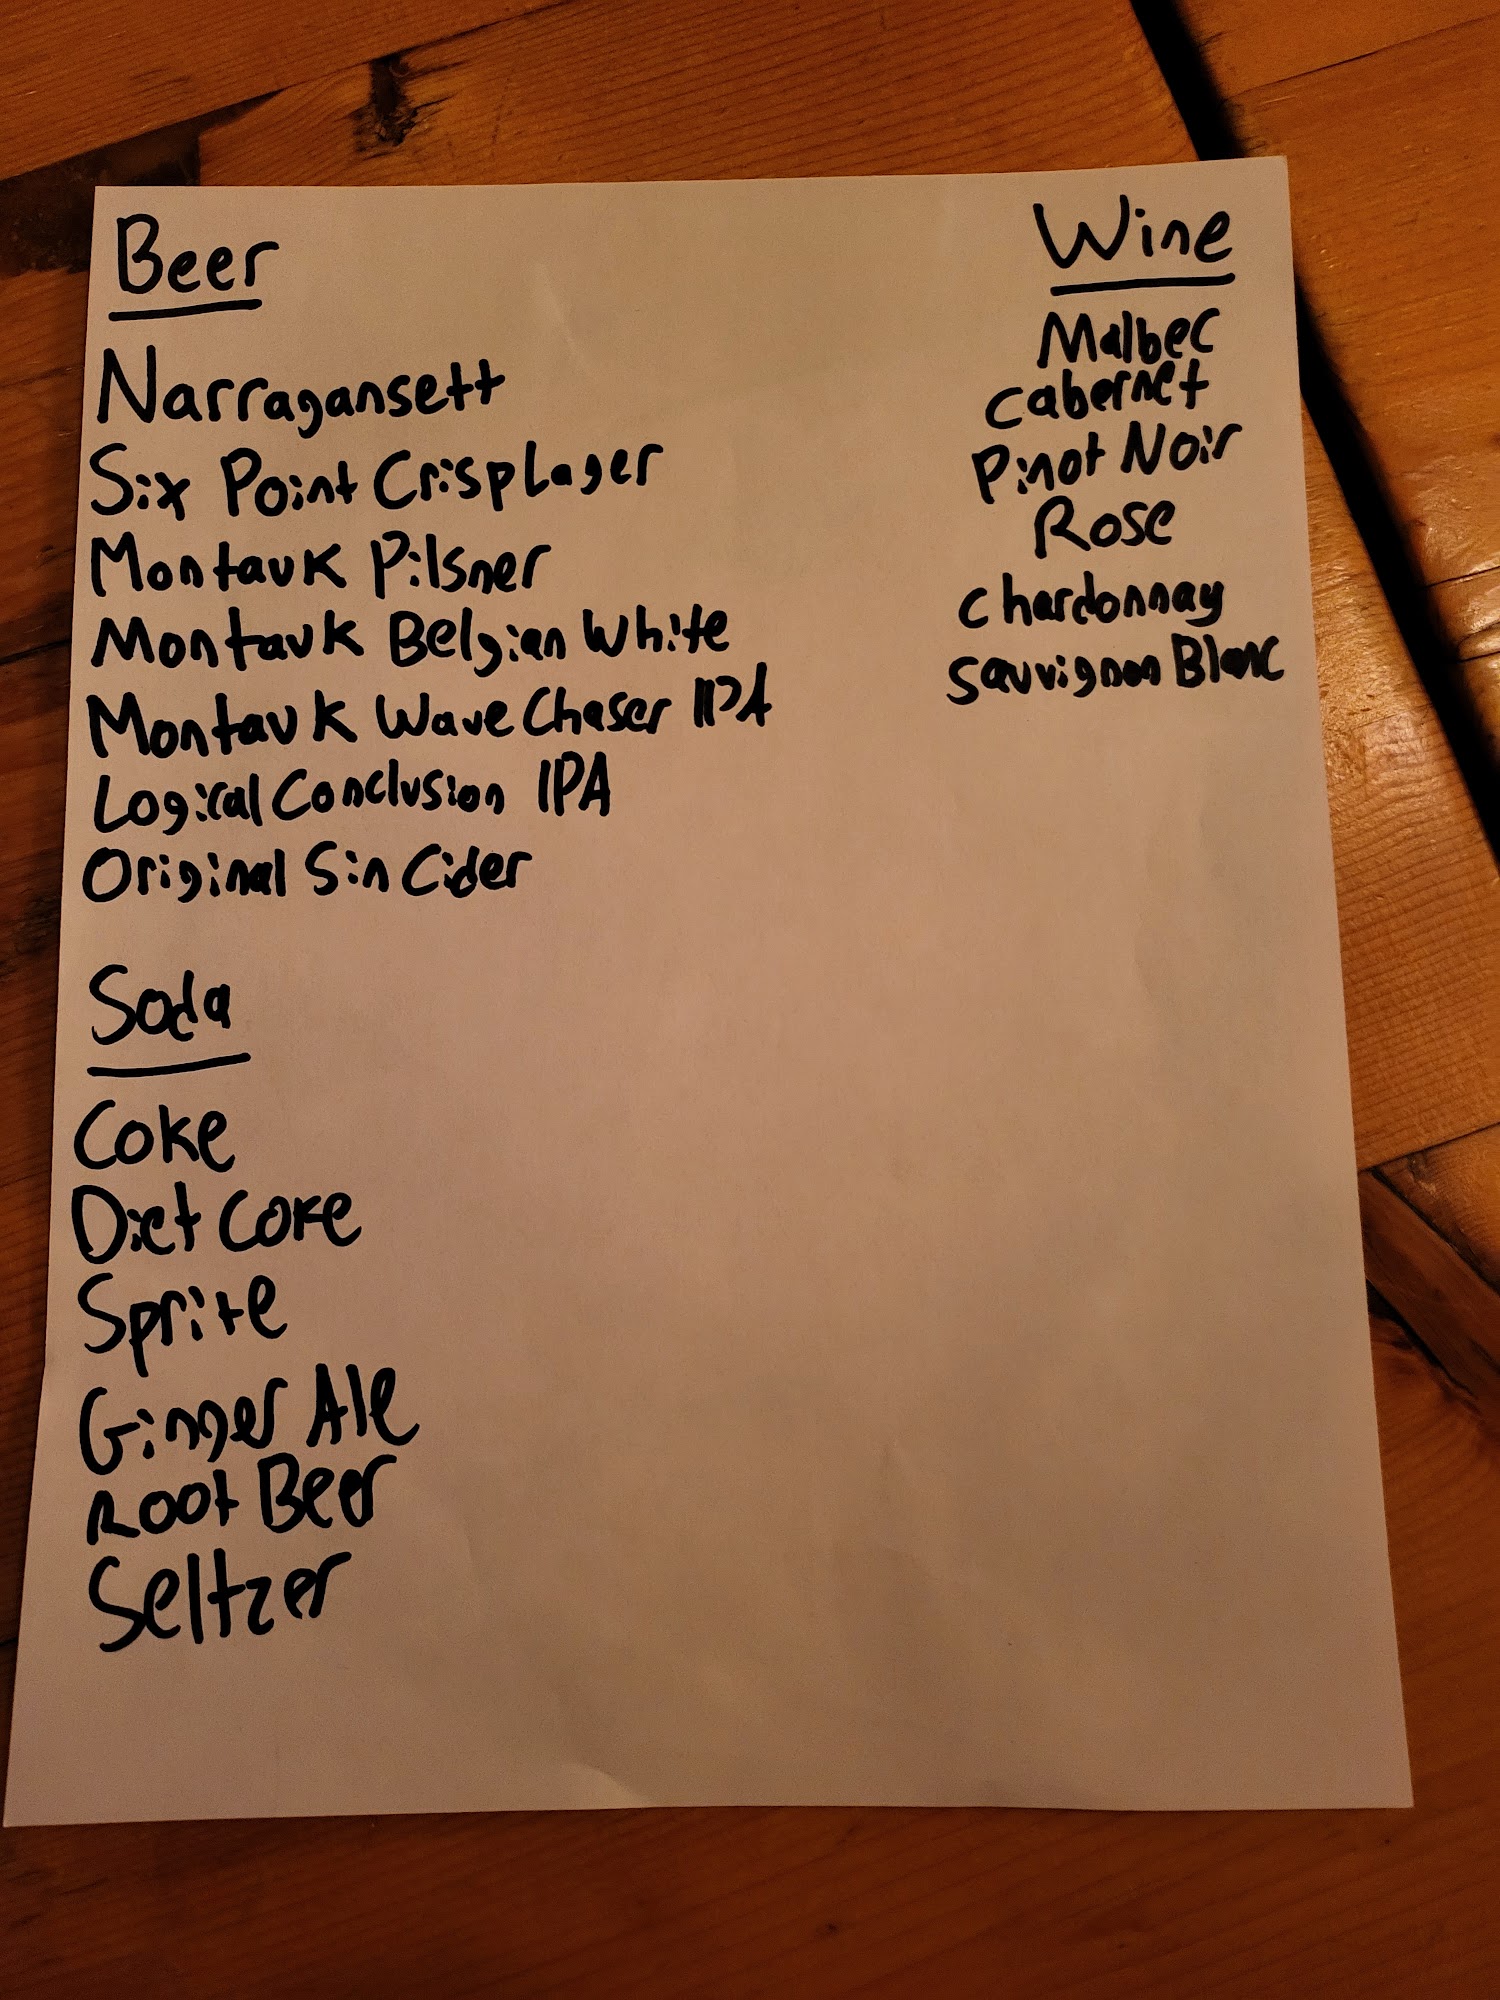 Beer
Narragansett
Six Point Crisp Lager
Montauk Pilsner
Montauk Belgian White
Montauk Wave Chaser IPA
Logical Conclusion IPA
Original Sin Cider
Soda
Coke
Diet Coke
Sprite
Ginger Ale
Root Beer
Seltzer
Wine
Malbec
Cabernet
Pinot Noir
Rose
Chardonnay
Sauvignon Blanc